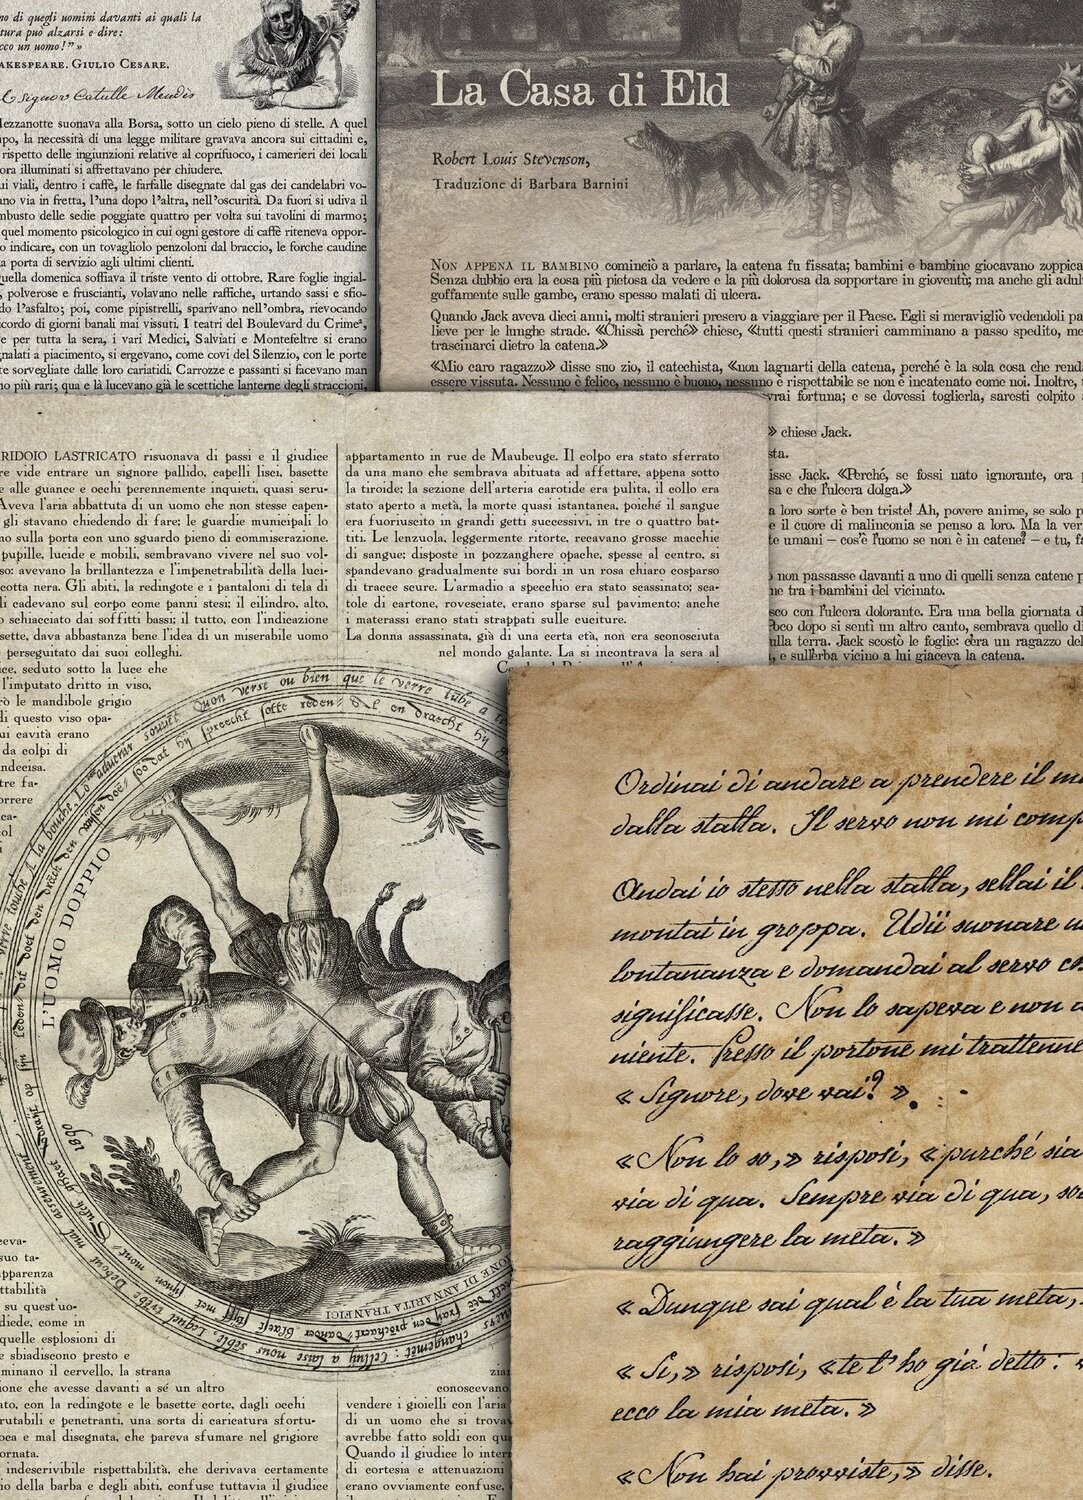 no di quegli uomini davanti ai quali la
tura può alzarsi e dire:
cco un uomo!"»
AKESPEARE. GIULIO CESARE.
signor Catulle Mendès
Mezzanotte suonava alla Borsa, sotto un cielo pieno di stelle. A quel
po, la necessità di una legge militare gravava ancora sui cittadini e,
rispetto delle ingiunzioni relative al coprifuoco, i camerieri dei locali
ora illuminati si affrettavano per chiudere.
ui viali, dentro i caffè, le farfalle disegnate dal gas dei candelabri vo-
ano via in fretta, l'una dopo l'altra, nell'oscurità. Da fuori si udiva il
mbusto delle sedie poggiate quattro per volta sui tavolini di marmo;
quel momento psicologico in cui ogni gestore di caffè riteneva oppor-
o indicare, con un tovagliolo penzoloni dal braccio, le forche caudine
a porta di servizio agli ultimi clienti.
uella domenica soffiava il triste vento di ottobre. Rare foglie ingial-
, polverose e fruscianti, volavano nelle raffiche, urtando sassi e sfio-
do l'asfalto; poi, come pipistrelli, sparivano nell'ombra, rievocando
cordo di giorni banali mai vissuti. I teatri del Boulevard du Crime¹,
e per tutta la sera, i vari Medici, Salviati e Montefeltre si erano
gnalati a piacimento, si ergevano, come covi del Silenzio, con le porte
te sorvegliate dalle loro cariatidi. Carrozze e passanti si facevano man
no più rari; qua e là lucevano già le scettiche lanterne degli straccioni,
La Casa di Eld
Robert Louis Stevenson,
Traduzione di Barbara Barnini
NON APPENA IL BAMBINO cominciò a parlare, la catena fu fissata; bambini e bambine giocavano zoppica
Senza dubbio era la cosa più pietosa da vedere e la più dolorosa da sopportare in gioventù; ma anche gli adul
goffamente sulle gambe, erano spesso malati di ulcera.
Quando Jack aveva dieci anni, molti stranieri presero a viaggiare per il Paese. Egli si meravigliò vedendoli pa
lieve per le lunghe strade. «Chissà perché» chiese, «tutti questi stranieri camminano a passo spedito, me
trascinarci dietro la catena.»
«Mio caro ragazzo» disse suo zio, il catechista, «non lagnarti della catena, perché è la sola cosa che rend
essere vissuta. Nessuno è felice, nessuno è buono, nessuno e rispettabile se non è incatenato come noi. Inoltre,
vrai fortuna; e se dovessi toglierla, saresti colpito
» chiese Jack.
sta.
isse Jack. «Perché, se fossi nato ignorante, ora
sa e che l'ulcera dolga.»
a loro sorte è ben triste! Ah, povere anime, se solo p
e il cuore di malinconia se penso a loro. Ma la ver
te umani – cos'è l'uomo se non è in catene? – e tu, fa
o non passasse davanti a uno di quelli senza catene p
ne tra i bambini del vicinato.
sco con l'ulcera dolorante. Era una bella giornata d
Poco dopo si sentì un altro canto, sembrava quello di
ulla terra. Jack scostò le foglie: c'era un ragazzo del
, e sull'erba vicino a lui giaceva la catena.
RIDOIO LASTRICATO risuonava di passi e il giudice
re vide entrare un signore pallido, capelli lisci, basette
e alle guance e occhi perennemente inquieti, quasi seru-
Aveva l'aria abbattuta di un uomo che non stesse capen-
gli stavano chiedendo di fare; le guardie municipali lo
no sulla porta con uno sguardo pieno di commiserazione.
pupille, lucide e mobili, sembravano vivere nel suo vol-
so: avevano la brillantezza e l'impenetrabilità della luci-
cotta nera. Gli abiti, la redingote e i pantaloni di tela di
li cadevano sul corpo come panni stesi; il cilindro, alto,
schiacciato dai soffitti bassi; il tutto, con l'indicazione
sette, dava abbastanza bene l'idea di un miserabile uomo
perseguitato dai suoi colleghi.
ice, seduto sotto la luce che
l'imputato dritto in viso,
rò le mandibole grigio
di questo viso opa-
ui cavità erano
da colpi di
ndecisa.
tre fa-
orrere
ca-
ol
appartamento in rue de Maubeuge. Il colpo era stato sferrato
da una mano che sembrava abituata ad affettare, appena sotto
la tiroide; la sezione dell'arteria carotide era pulita, il collo era
stato aperto a metà, la morte quasi istantanea, poiché il sangue
era fuoriuscito in grandi getti successivi, in tre o quattro bat-
titi. Le lenzuola, leggermente ritorte, recavano grosse macchie
di sangue; disposte in pozzanghere opache, spesse al centro, si
spandevano gradualmente sui bordi in un rosa chiaro cosparso
di tracce scure. L'armadio a specchio era stato scassinato; sca-
tole di cartone, rovesciate, erano sparse sul pavimento; anche
i materassi erano stati strappati sulle cuciture.
La donna assassinata, già di una certa età, non era sconosciuta
nel mondo galante. La si incontrava la sera al
L'UOMO DOPPIO
1890
ANNARITA TRANFICI
eva-
suo ta-
apparenza
ttabilità
su quest'uo-
diede, come in
quelle esplosioni di
e sbiadiscono presto e
minano il cervello, la strana
ione che avesse davanti a sé un altro
ato, con la redingote e le basette corte, dagli occhi
rutabili e penetranti, una sorta di caricatura sfortu-
oca e mal disegnata, che pareva sfumare nel grigiore
ornata.
indescrivibile rispettabilità, che derivava certamente
io della barba e degli abiti, confuse tuttavia il giudice
zian
conoscevano
vendere i gioielli con l'aria
di un uomo che si trova
avrebbe fatto soldi con qu
Quando il giudice lo inter
di cortesia e attenuazioni
erano ovviamente confuse,
Ordinai di andare a prendere il m
dalla stalla. Il servo non mi comp
Andai io stesso nella stalla, sellai il
montai in groppa. Udii suonare u
lontananza e domandai al servo co
significasse. Non lo sapeva e non a
niente. Presso il portone mi trattenne
« Signore, dove vai? ».
« Non lo so, » risposi, « purché sia
via di qua. Sempre via di qua, so
raggiungere la meta. »
« Dunque sai qual è la tua meta,
« Sì, » risposi, « te l'ho già detto:
ecco la mia meta. »
« Non hai provviste, » disse.